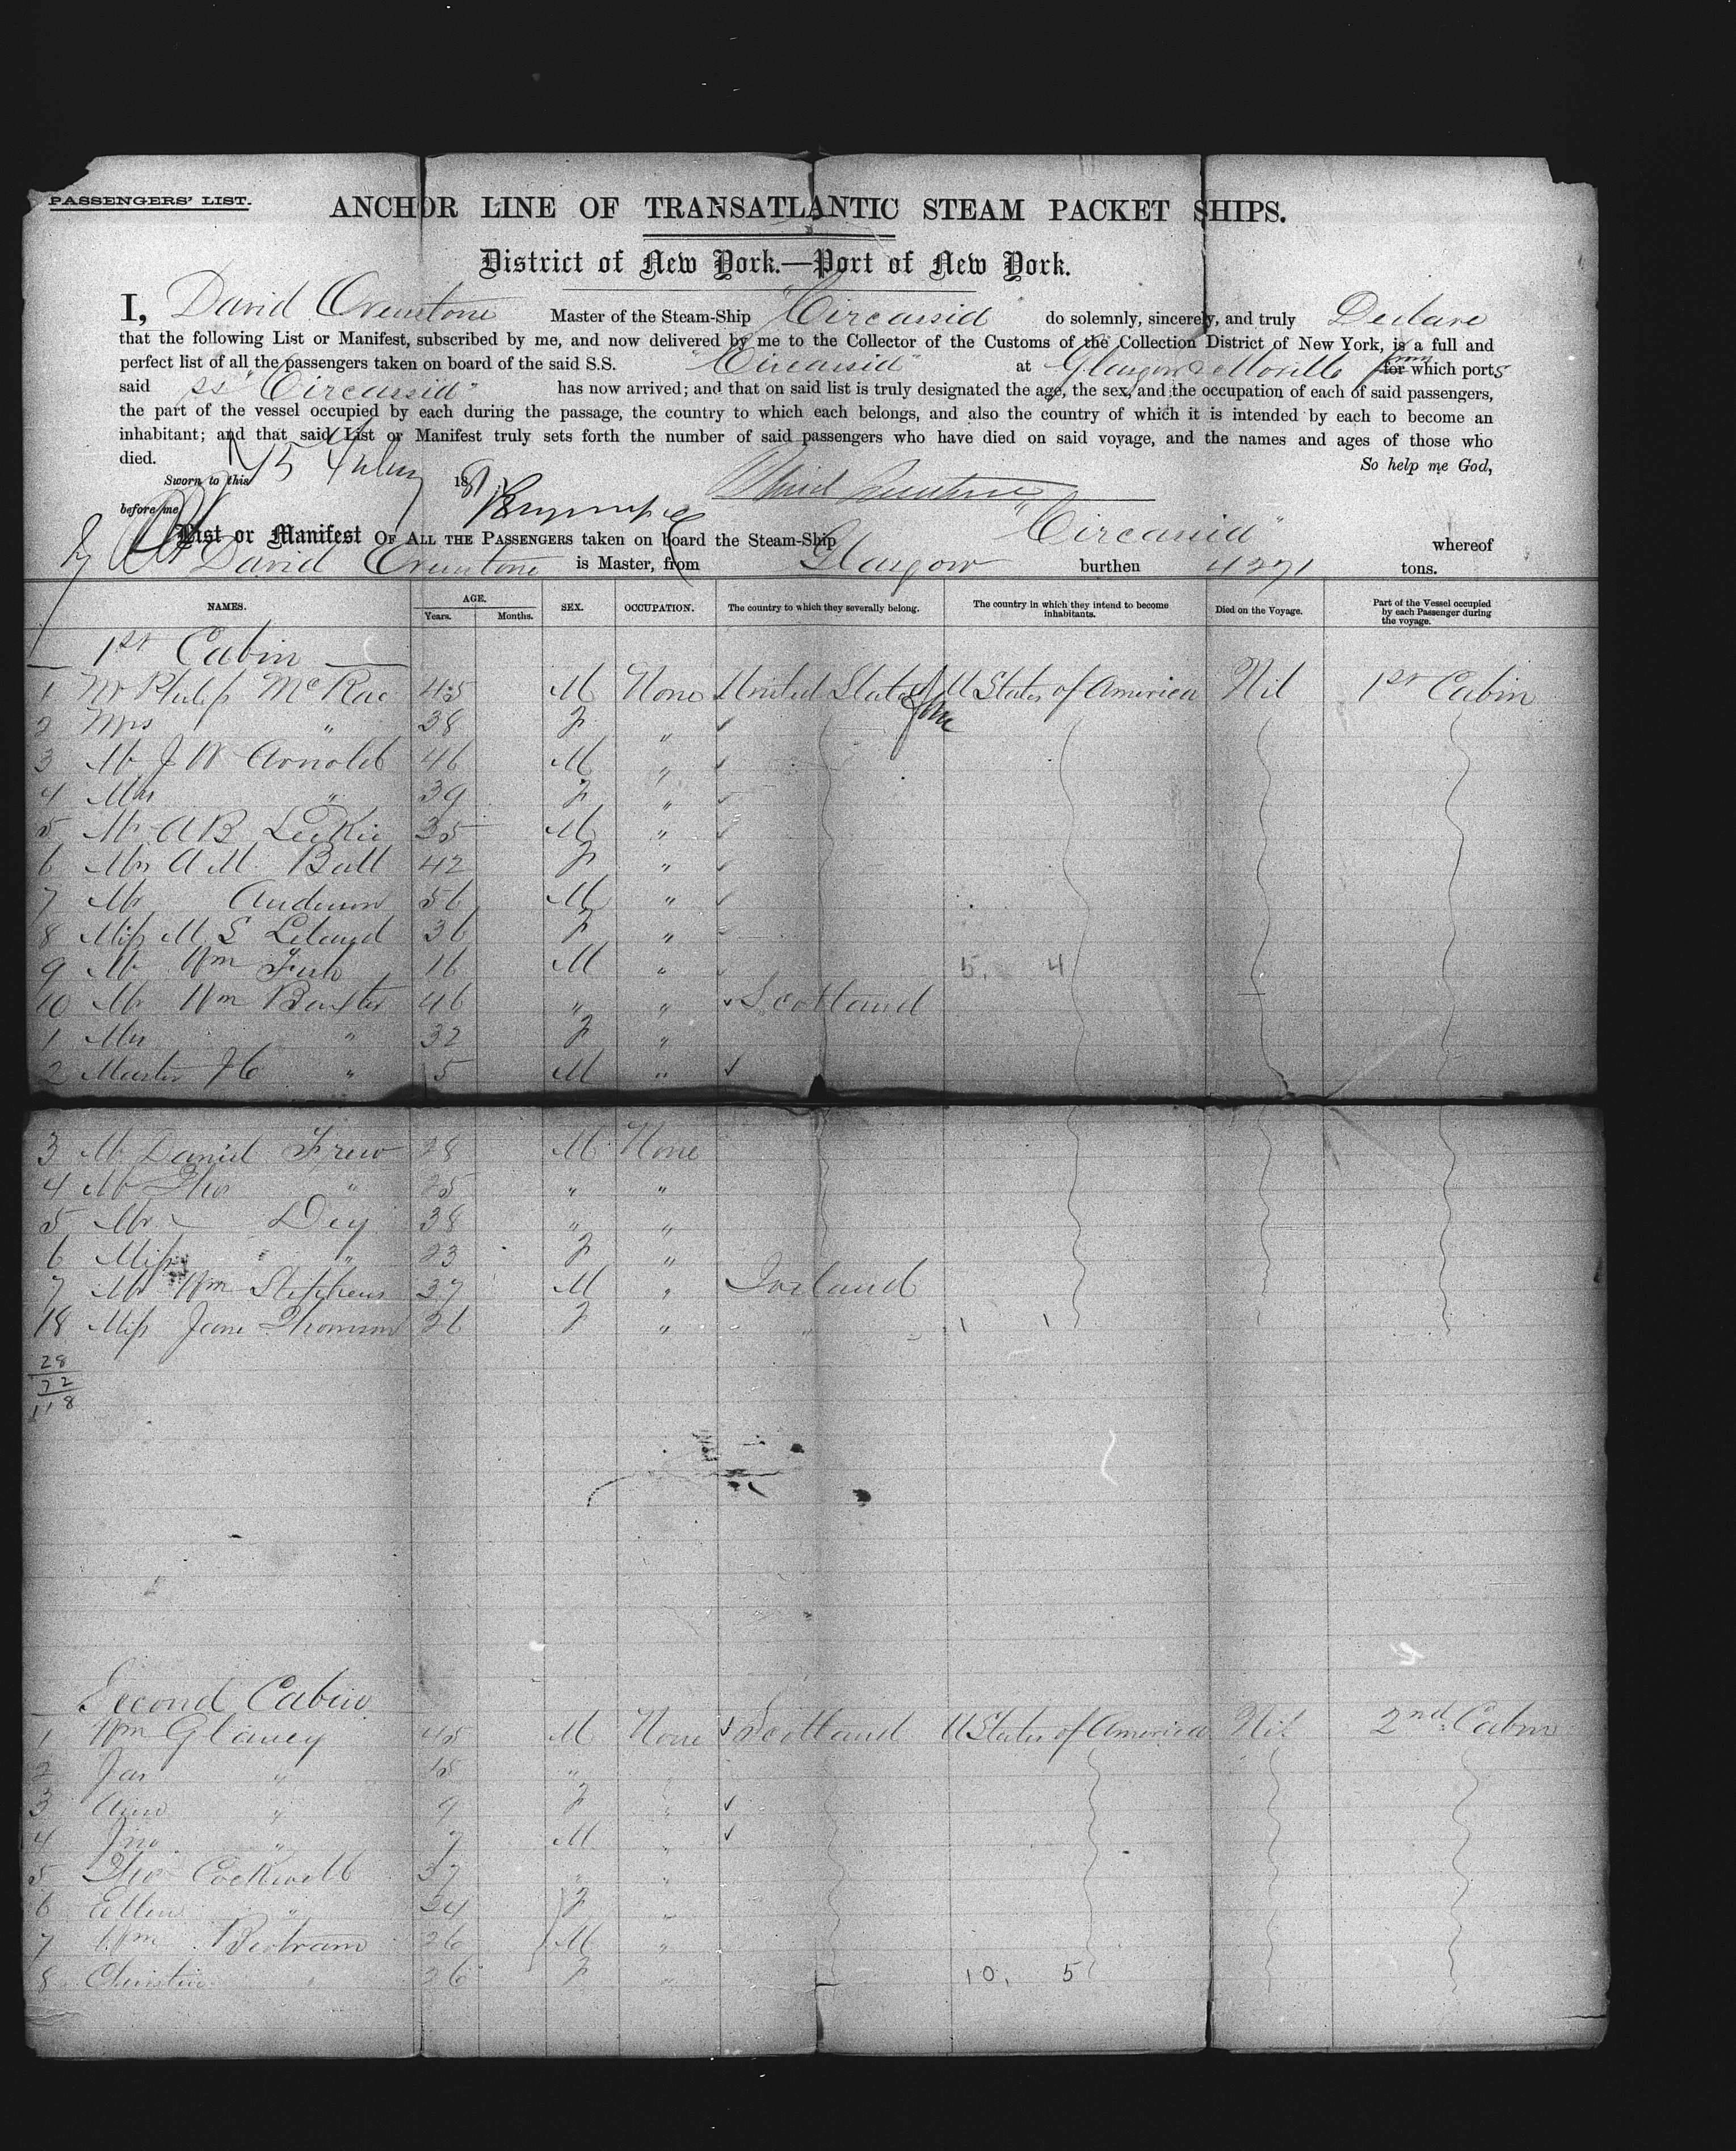 PASSENGERS' LIST.
ANCHOR LINE OF TRANSATLANTIC STEAM PACKET SHIPS.
District of New York.—Port of New York.
I, David Ovenstone Master of the Steam-Ship "Circassia" do solemnly, sincerely, and truly Declare
that the following List or Manifest, subscribed by me, and now delivered by me to the Collector of the Customs of the Collection District of New York, is a full and
perfect list of all the passengers taken on board of the said S.S. "Circassia" at Glasgow & Moville from for which ports
said ss "Circassia" has now arrived; and that on said list is truly designated the age, the sex, and the occupation of each of said passengers,
the part of the vessel occupied by each during the passage, the country to which each belongs, and also the country of which it is intended by each to become an
inhabitant; and that said List or Manifest truly sets forth the number of said passengers who have died on said voyage, and the names and ages of those who
died. So help me God,
Sworn to this 15 July 1881 David Ovenstone
before me
List or Manifest OF ALL THE PASSENGERS taken on board the Steam-Ship "Circassia" whereof
David Ovenstone is Master, from Glasgow burthen 4271 tons.
NAMES. AGE. Years. Months. SEX. OCCUPATION. The country to which they severally belong. The country in which they intend to become inhabitants. Died on the Voyage. Part of the Vessel occupied by each Passenger during the voyage.
1st Cabin
1 Mr Philip McRae 45 M None United States U States of America Nil 1st Cabin
2 Mrs " 38 F "
3 Mr J W Arnold 46 M "
4 Mrs " 39 F "
5 Mr A B Leckie 35 M "
6 Mrs A M Ball 42 F "
7 Mr Anderson 56 M "
8 Miss M S Leland 36 F "
9 Mr Wm 16 M " 5. 4
10 Mr Wm Baxter 46 " " Scotland
1 Mrs " 32 F "
2 Master J C " 5 M "
3 Mr Daniel Frew 28 M None
4 Mr Thos " 25 " "
5 Mr Dey 38 " "
6 Miss " 23 F "
7 Mr Wm Stephens 37 M " Ireland
18 Miss Jane Thomson 26 F " " 1 1
28
72
118
Second Cabin
1 Wm Glancy 45 M None Scotland U States of America Nil 2nd Cabin
2 Jas " 15 "
3 Ann " 9 F "
4 Jno " 7 M "
5 Thos Cockwell 37 " "
6 Ellen " 34 F "
7 Wm Bertram 26 M "
8 Christina " 26 F " 10. 5